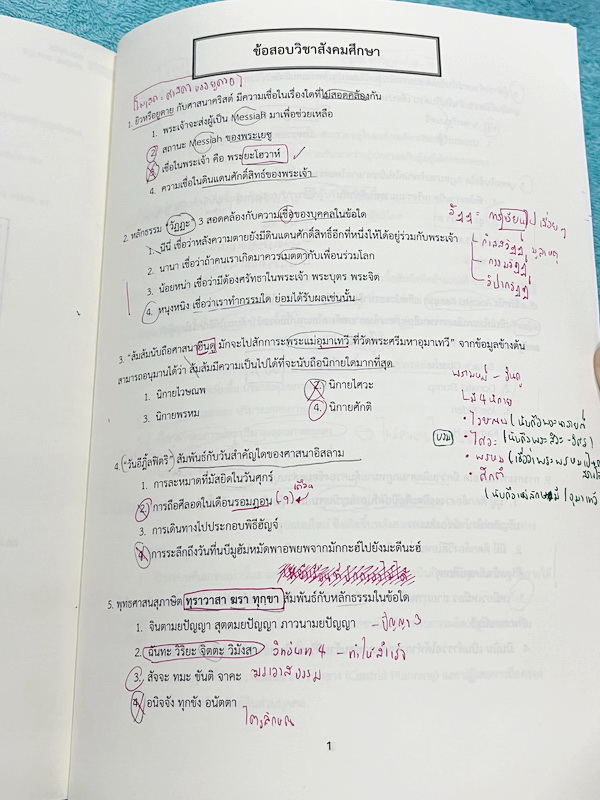 ข้อสอบวิชาสังคมศึกษา
1. ยิวหรือยูดาย กับศาสนาคริสต์ มีความเชื่อในเรื่องใดที่ไม่สอดคล้องกัน
1. พระเจ้าจะส่งผู้เป็น Messiah มาเพื่อช่วยเหลือ
2. สถานะ Messiah ของพระเยซู
3. เชื่อในพระเจ้า คือ พระยะโฮวาห์
4. ความเชื่อในดินแดนศักดิ์สิทธิ์ของพระเจ้า
2. หลักธรรม "วัฏฏะ" 3 สอดคล้องกับความเชื่อของบุคคลในข้อใด
1. นีนี่ เชื่อว่าหลังความตายยังมีดินแดนศักดิ์สิทธิ์อีกที่หนึ่งให้ได้อยู่ร่วมกับพระเจ้า
2. นานา เชื่อว่าถ้าคนเราเกิดมาควรเมตตากับเพื่อนร่วมโลก
3. น้อยหน่า เชื่อว่ามีต้องศรัทธาในพระเจ้า พระบุตร พระจิต
4. หนุงหนิง เชื่อว่าเราทำกรรมใด ย่อมได้รับผลเช่นนั้น
วัฏฏะ = การเวียนไปเรื่อยๆ
กิเลสวัฏฏ์
กรรมวัฏฏ์
วิปากวัฏฏ์
3. "ส้มส้มนับถือศาสนาฮินดู มักจะไปสักการะพระแม่อุมาเทวี ที่วัดพระศรีมหาอุมาเทวี" จากข้อมูลข้างต้น
สามารถอนุมานได้ว่า ส้มส้มมีความเป็นไปได้ที่จะนับถือนิกายใดมากที่สุด
1. นิกายไวษณพ
2. นิกายไศวะ
3. นิกายพรหม
4. นิกายศักติ
พราหมณ์ - ฮินดู
มี 4 นิกาย
4. "วันอีฎิ้ลฟิตริ" สัมพันธ์กับวันสำคัญใดของศาสนาอิสลาม
1. การละหมาดที่มัสยิดในวันศุกร์
2. การถือศีลอดในเดือนรอมฎอน (9) เดือน
3. การเดินทางไปประกอบพิธีฮัญจ์
4. การระลึกถึงวันที่นบีมูฮัมหมัดพาอพยพจากมักกะฮ์ไปยังมะดีนะฮ์
5. พุทธศาสนสุภาษิต ทุราวาสา ฆรา ทุกฺขา สัมพันธ์กับหลักธรรมในข้อใด
1. จินตามยปัญญา สุตตมยปัญญา ภาวนามยปัญญา - ปัญญา 3
2. ฉันทะ วิริยะ จิตตะ วิมังสา อิทธิบาท 4 - ทำให้สำเร็จ
3. สัจจะ ทมะ ขันติ จาคะ ฆราวาสธรรม
4. อนิจจัง ทุกขัง อนัตตา
ไตรลักษณ์
1